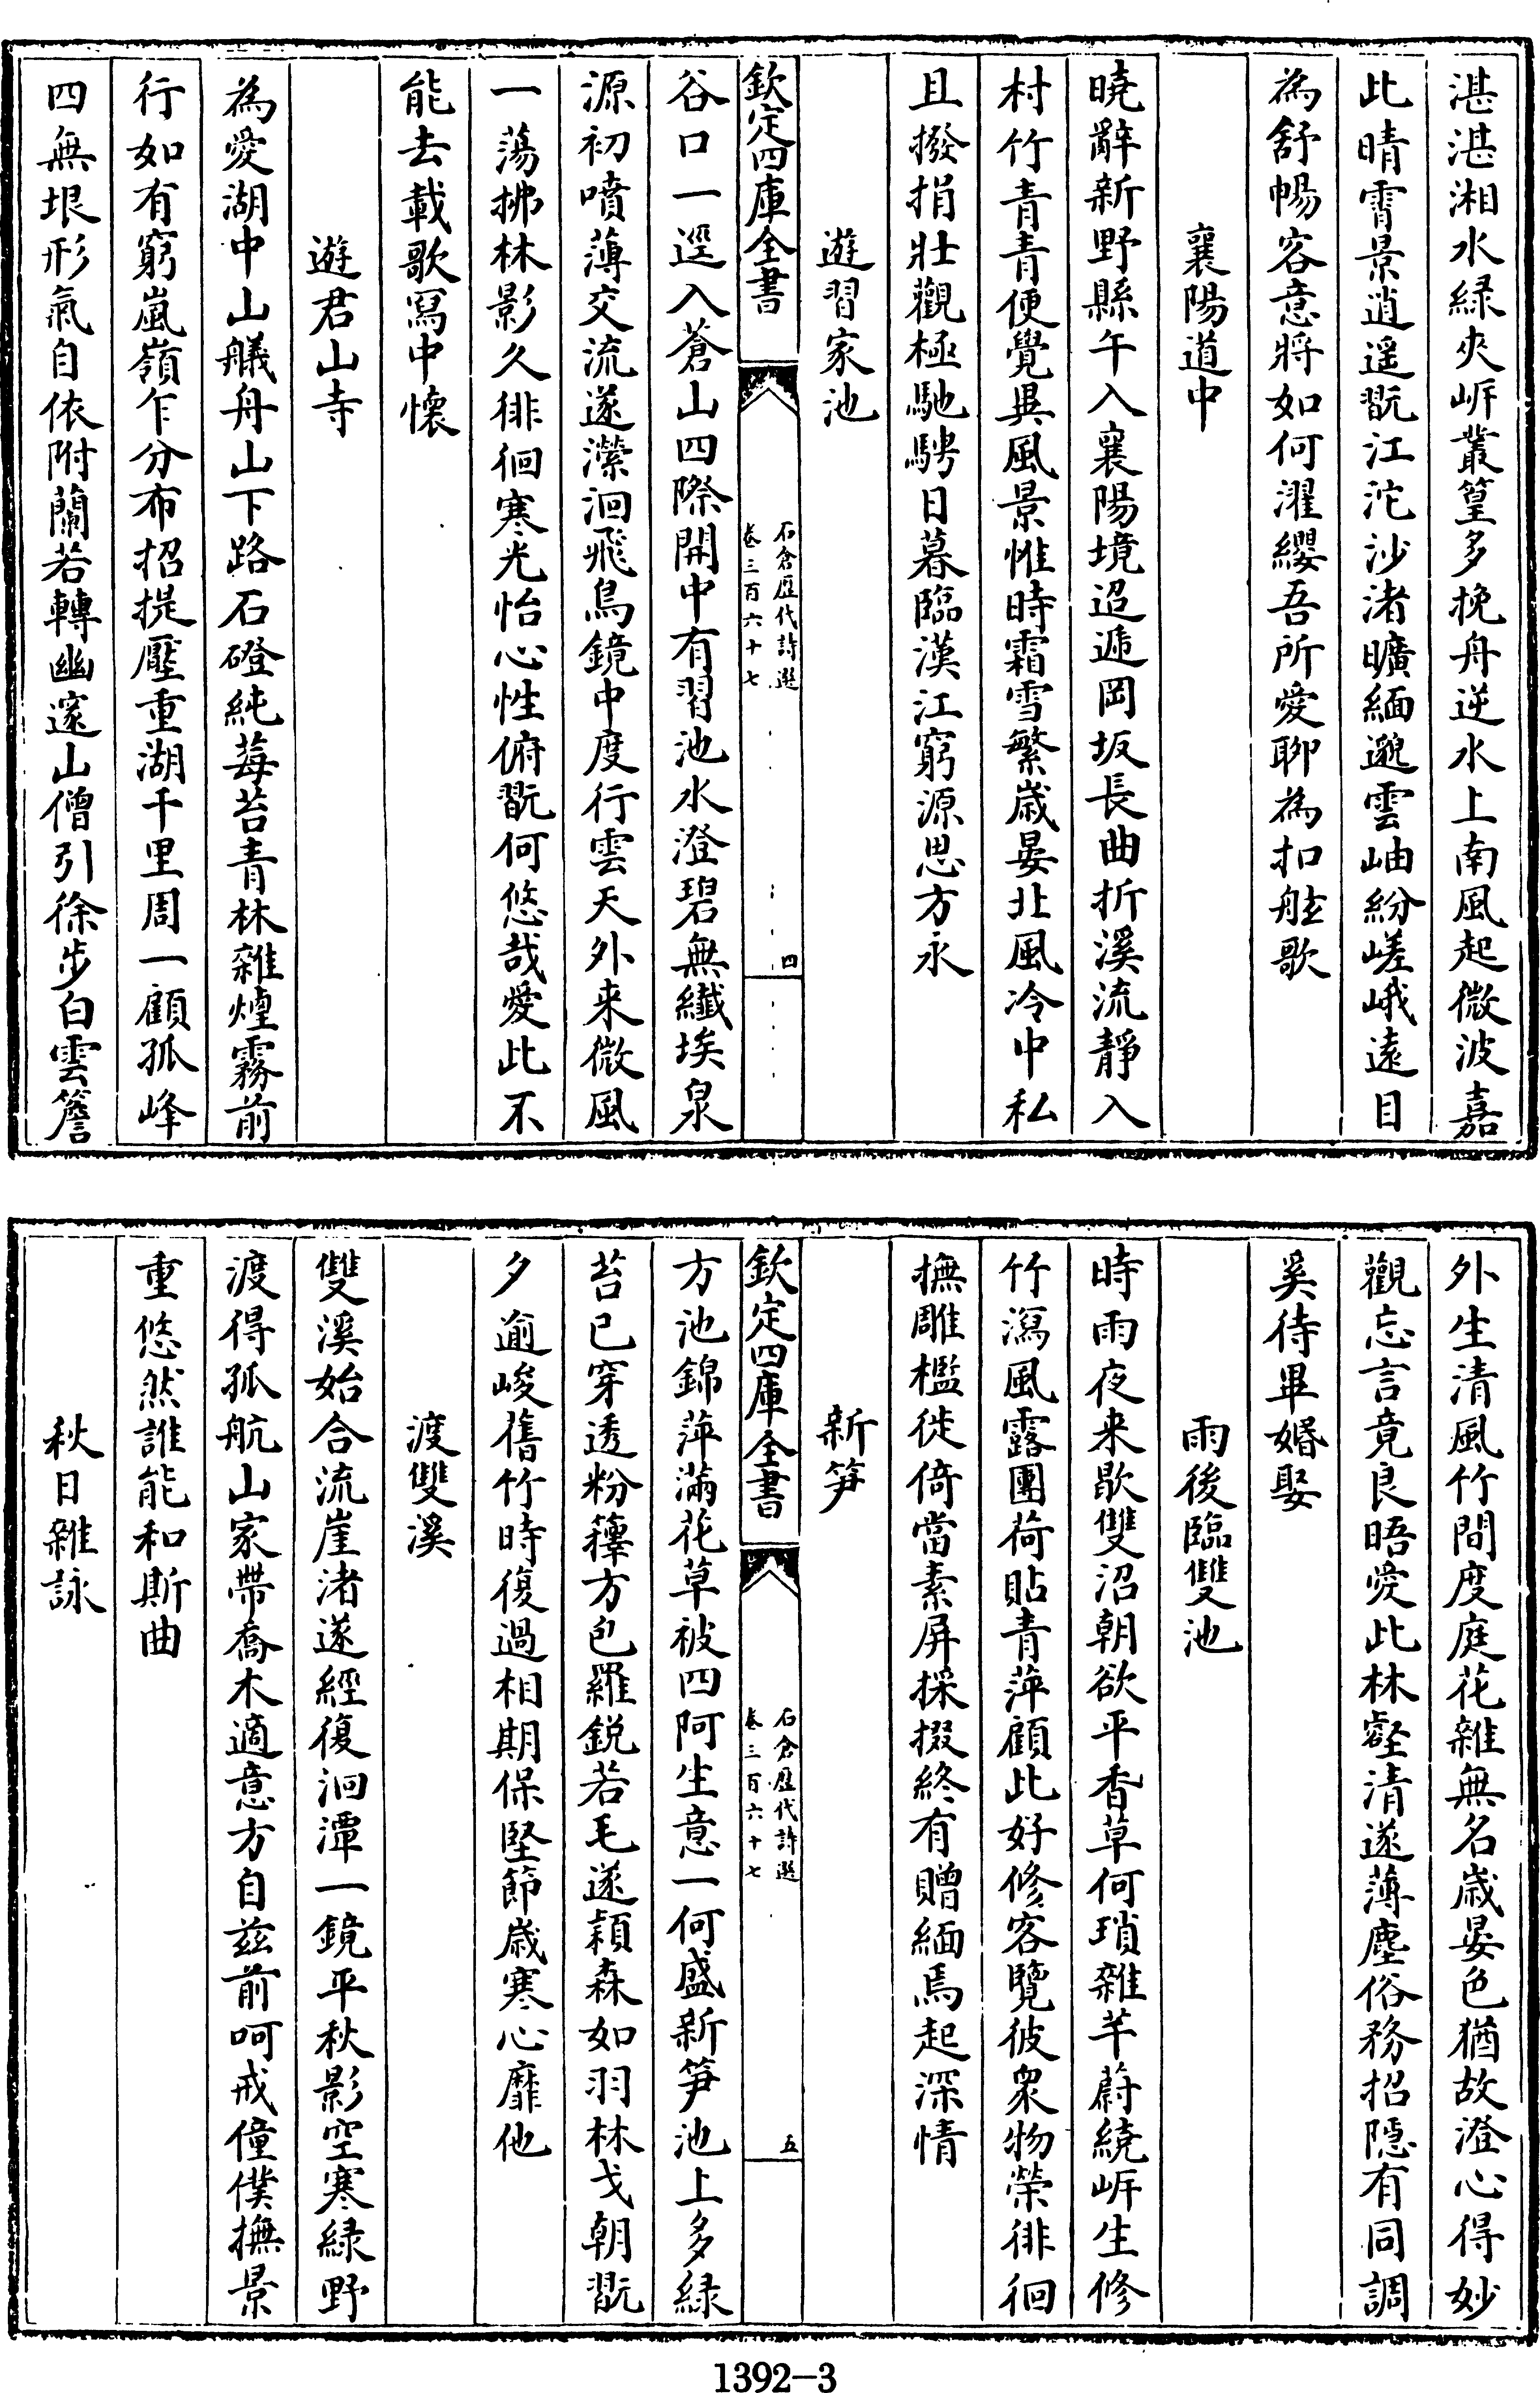 湛湛湘水緑夾岍叢篁多挽舟逆水上南風起微波嘉
此晴霄景逍遥翫江沱沙渚曠緬邈雲岫紛嵯峨遠目
為舒暢容意將如何濯纓吾所愛聊為扣舷歌
襄陽道中
曉辭新野縣午入襄陽境迢遞岡坂長曲折溪流靜入
村竹青青便覺異風景惟時霜雪繁嵗晏北風冷中私
且撥捐壯觀極馳騁日暮臨漢江窮源思方永
遊習家池
欽定四庫全書
石倉歴代詩選
卷三百六十七
四
谷口一逕入蒼山四際開中有習池水澄碧無纖埃泉
源初噴薄交流遂瀠洄飛鳥鏡中度行雲天外来微風
一蕩拂林影久徘徊寒光怡心性俯翫何悠哉愛此不
能去載歌寫中懷
遊君山寺
為愛湖中山艤舟山下路石磴純莓苔青林雜煙霧前
行如有窮嵐嶺乍分布招提壓重湖千里周一顧孤峰
四無垠形氣自依附蘭若轉幽邃山僧引徐步白雲簷
外生清風竹間度庭花雜無名嵗晏色猶故澄心得妙
觀忘言竟良晤愛此林壑清遂薄塵俗務招隠有同調
奚待畢婚娶
雨後臨雙池
時雨夜来歇雙沼朝欲平香草何瑣雜芊蔚繞岍生修
竹瀉風露團荷貼青萍顧此好修容覽彼衆物榮徘徊
撫雕檻徙倚當素屏採掇終有贈緬焉起深情
新笋
欽定四庫全書
石倉歴代詩選
卷三百六十七
五
方池錦萍滿花草被四阿生意一何盛新笋池上多緑
苔已穿透粉籜方包羅鋭若毛遂穎森如羽林戈朝翫
夕逾峻舊竹時復過相期保堅節嵗寒心靡他
渡雙溪
雙溪始合流崖渚遂經復洄潭一鏡平秋影空寒緑野
渡得孤航山家帶喬木適意方自兹前呵戒僮僕撫景
重悠然誰能和斯曲
秋日雜詠
1392-3